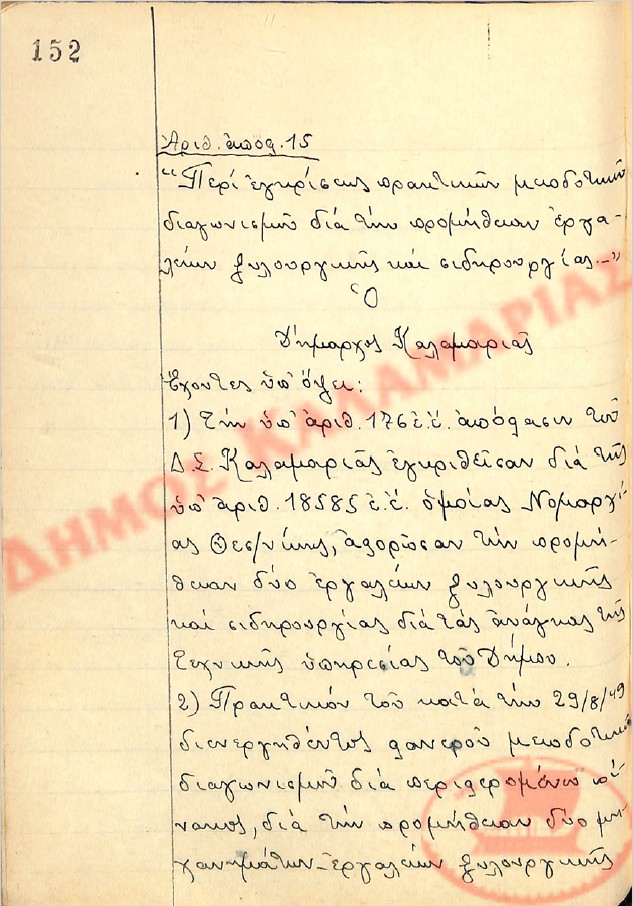 152
Ἀριθ. ἀποφ. 15
"Περί ἐγκρίσεως πρακτικῶν μειοδοτικοῦ
διαγωνισμοῦ διά τήν προμήθειαν ἐργα-
λείων ξυλουργικῆς καί σιδηρουργίας.-"
Ὁ
Δήμαρχος Καλαμαριᾶς
Ἔχοντες ὑπ' ὄψει:
1) Τήν ὑπ' ἀριθ. 176 ἐ.ἔ. ἀπόφασιν τοῦ
Δ.Σ. Καλαμαριᾶς ἐγκριθεῖσαν διά τῆς
ὑπ' ἀριθ. 18585 ἐ.ἔ. ὁμοίας Νομαρχί-
ας Θεσ/νίκης, ἀφορῶσαν τήν προμή-
θειαν δύο ἐργαλείων ξυλουργικῆς
καί σιδηρουργίας διά τάς ἀνάγκας τῆς
τεχνικῆς ὑπηρεσίας τοῦ Δήμου.
2) Πρακτικόν τοῦ κατά τήν 29/8/49
διενεργηθέντος φανεροῦ μειοδοτικοῦ
διαγωνισμοῦ διά περιφερομένου πί-
νακος, διά τήν προμήθειαν δύο μη-
χανημάτων-ἐργαλείων ξυλουργικῆς
ΔΗΜΟΣ ΚΑΛΑΜΑΡΙΑΣ